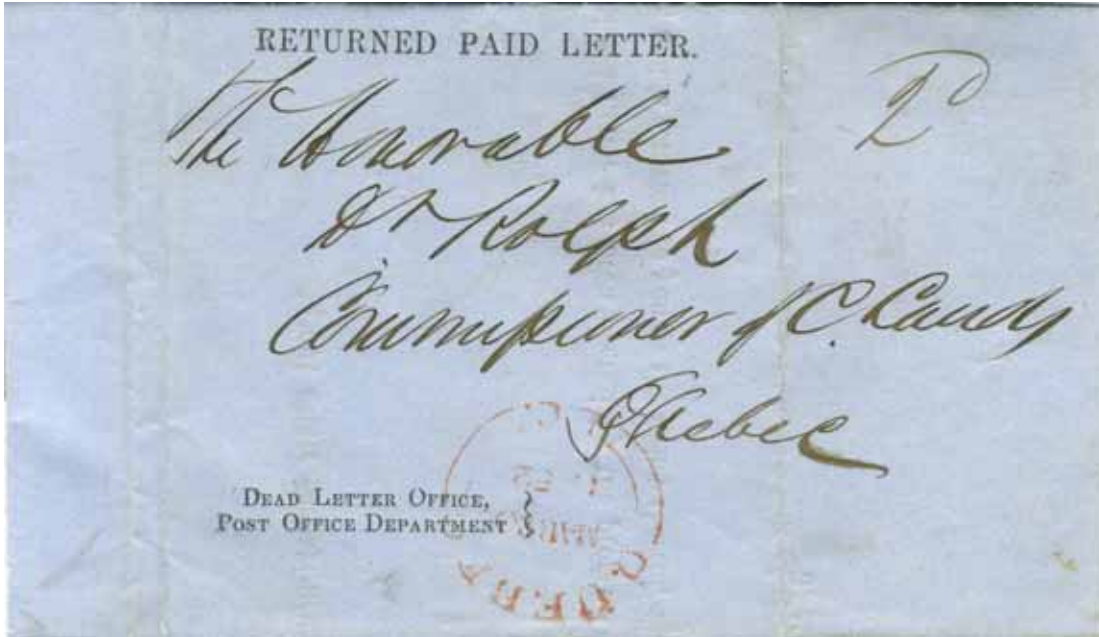 RETURNED PAID LETTER.
2D
The Honorable
Dr Rolph
Commissioner of C. Lands
Quebec
DEAD LETTER OFFICE,
POST OFFICE DEPARTMENT
QUEBEC